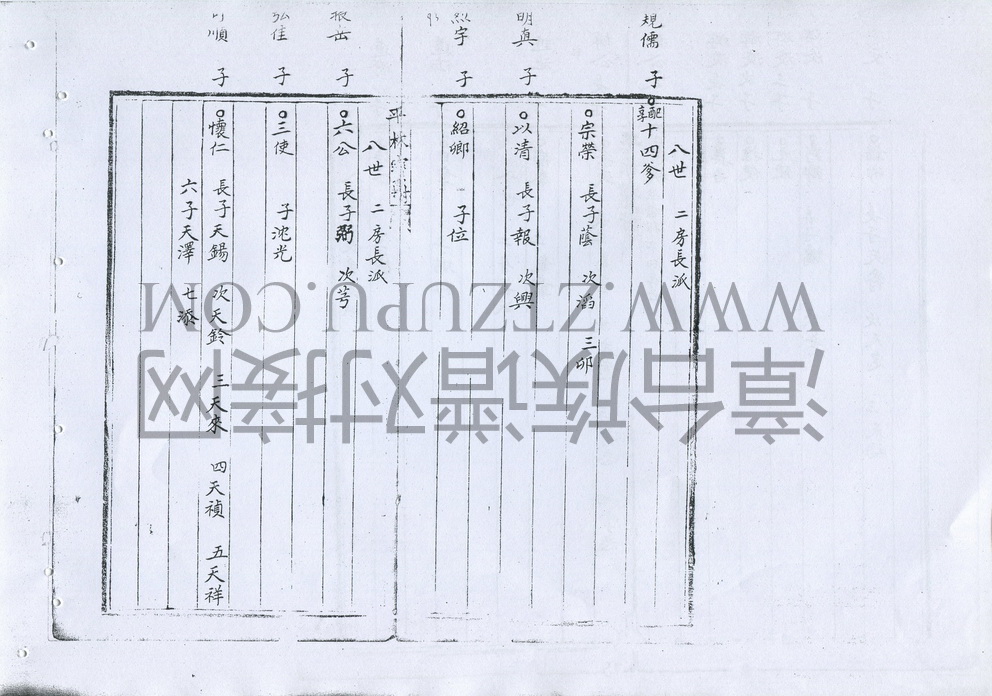 規儒 子
明真 子
宇 子
振岳 子
弘佳 子
順 子
八世 二房長派
配享 十四爹
宗榮 長子蔭 次滔 三卯
以清 長子報 次興
紹卿 子位
平林
八世 二房長派
六公 長子弼 次芎
三使 子沈光
懷仁 長子天錫 次天鈴 三天來 四天禎 五天祥
六子天澤 七添
WWW.ZTZUPU.COM
漳台族谱对接网